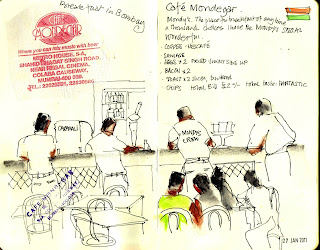 Breakfast in Bombay
CAFE
MONDEGAR
Where you can mix music with beer
METRO HOUSE, 5-A,
SHAHID BHAGAT SINGH ROAD,
NEAR REGAL CINEMA,
COLABA CAUSEWAY,
MUMBAI-400 039.
TEL.:
Café Mondegar
Mondy's. The place for breakfast if any, bar
a thousand choices. I have the Mondy's SPECIAL
Wonderful.
COFFEE - NESCAFE
SAUSAGE
EGGS x 2 FRIED SUNNY SIDE UP
BACON x 2
TOAST x 2 SLICES, BUTTERED
CHIPS total, BIG total taste: FANTASTIC
MONDYS
CREW
27 JAN 2011